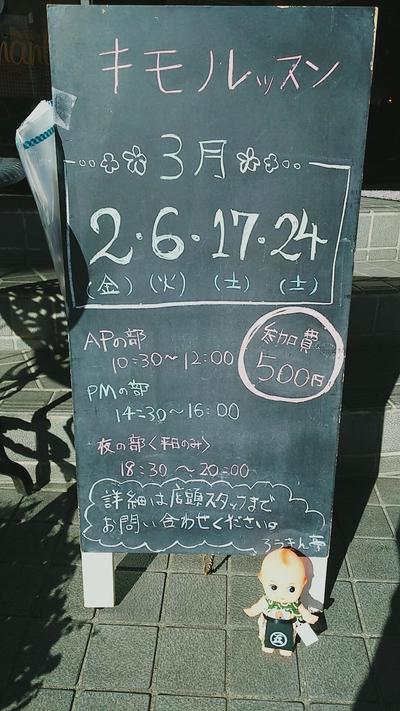 キモノレッスン
3月
2・6・17・24
(金) (火) (土) (土)
APの部
10:30～12:00
参加費
500円
PMの部
14:30～16:00
夜の部<平日のみ>
18:30～20:00
詳細は店頭スタッフまで
お問い合わせください。